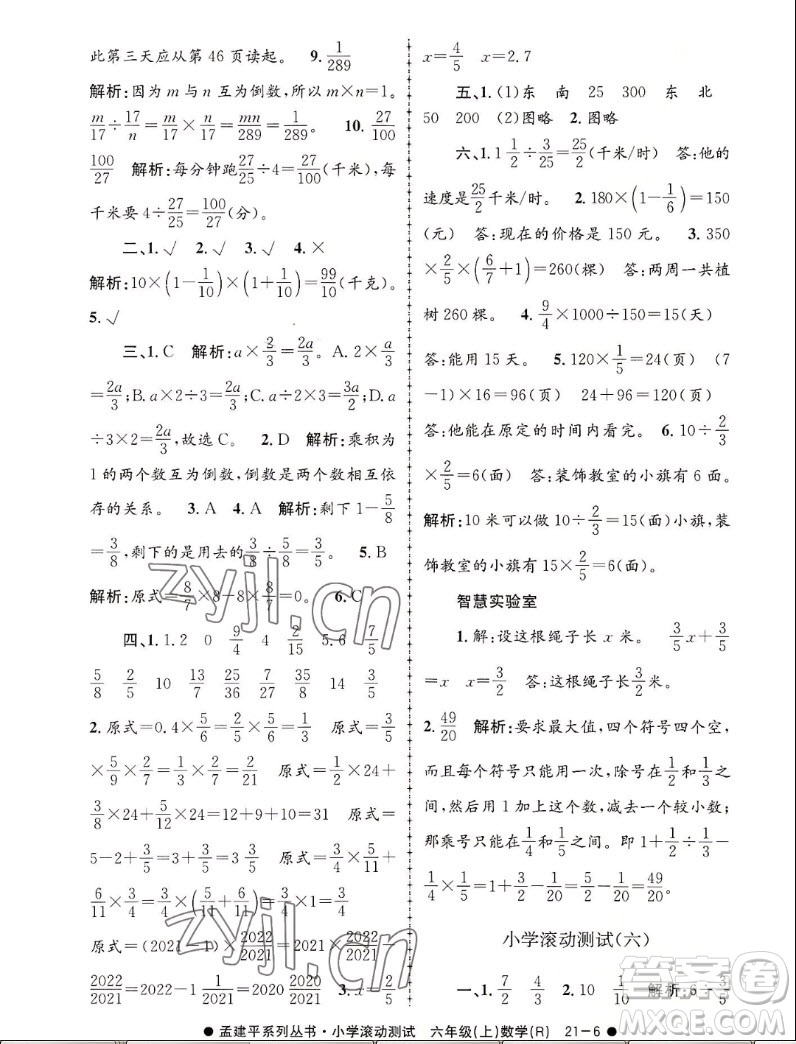 此第三天应从第 46 页读起。 9. 1/289
解析:因为 m 与 n 互为倒数,所以 m×n=1。
m/17÷17/n=m/17×n/17=mn/289=1/289。 10. 27/100
100/27 解析:每分钟跑27/25÷4=27/100(千米),每
千米要 4÷27/25=100/27(分)。
二、1. √ 2. √ 3. √ 4. ×
解析:10×(1-1/10)×(1+1/10)=99/10(千克)。
5. √
三、1. C 解析:a×2/3=2a/3。A. 2×a/3
=2a/3;B. a×2÷3=2a/3;C. a÷2×3=3a/2;D. a
÷3×2=2a/3,故选 C。 2. D 解析:乘积为
1 的两个数互为倒数,倒数是两个数相互依
存的关系。 3. A 4. A 解析:剩下 1-5/8
=3/8,剩下的是用去的3/8÷5/8=3/5。 5. B
解析:原式=8/7×8-8×8/7=0。 6. C
四、1. 1.2 0 9/4 4 2/15 5.6 7/5
5/8 2/5 10 13/7 25/36 7/27 35/8 14 3/5
2. 原式=0.4×5/6=2/5×5/6=1/3 原式=3/5
×5/9×2/7=1/3×2/7=2/21 原式=1/2×24+
3/8×24+5/12×24=12+9+10=31 原式=
5-2+3/5=3+3/5=3 3/5 原式=5/11×3/4+
6/11×3/4=(5/11+6/11)×3/4=3/4×1=3/4
原式=(2021+1)×2022/2021=2021×2022/2021+
2022/2021=2022+1 1/2021=2023 1/2021 3. x=
x=4/5 x=2.7
五、1. (1)东 南 25 300 东 北
50 200 (2)图略 2. 图略
六、1. 1 1/2÷3/25=25/2(千米/时) 答:他的
速度是25/2千米/时。 2. 180×(1-1/6)=150
(元) 答:现在的价格是 150 元。 3. 350
×2/5×(6/7+1)=260(棵) 答:两周一共植
树 260 棵。 4. 9/4×1000÷150=15(天)
答:能用 15 天。 5. 120×1/5=24(页) (7
-1)×16=96(页) 24+96=120(页)
答:他能在原定的时间内看完。 6. 10÷2/3
×2/5=6(面) 答:装饰教室的小旗有 6 面。
解析:10 米可以做 10÷2/3=15(面)小旗,装
饰教室的小旗有 15×2/5=6(面)。
智慧实验室
1. 解:设这根绳子长 x 米。 3/5x+3/5
=x x=3/2 答:这根绳子长3/2米。
2. 49/20 解析:要求最大值,四个符号四个空,
而且每个符号只能用一次,除号在1/2和1/3之
间,然后用 1 加上这个数,减去一个较小数;
那乘号只能在1/4和1/5之间。即 1+1/2÷1/3-
1/4×1/5=1+3/2-1/20=5/2-1/20=49/20。
小学滚动测试(六)
一、1. 7/2 4/3 2. 10 1/10 解析:6÷
●孟建平系列丛书·小学滚动测试 六年级(上)数学(R) 21-6●
zyjl.cn
zyjl.cn
答案圈
MXQE.COM